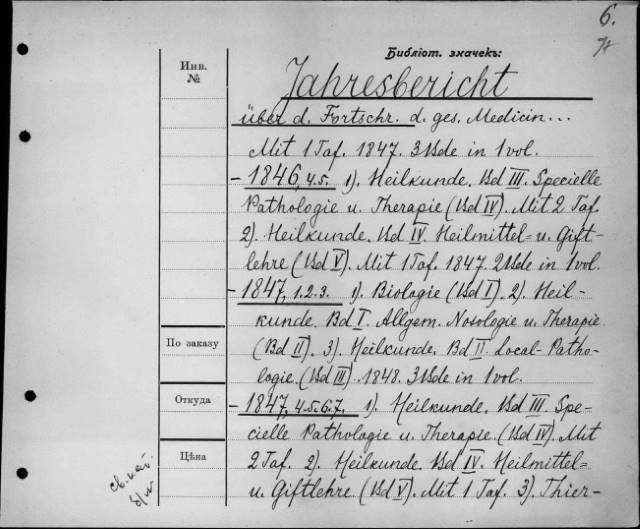 6.
Библіот. значекъ:
Инв.
№
Jahresbericht
über d. Fortschr. d. ges. Medicin...
Mit 1 Taf. 1847. 3 Bde in 1 vol.
- 1846, 4.5. 1). Heilkunde. Bd III. Specielle
Pathologie u. Therapie (Bd IV). Mit 2 Taf.
2). Heilkunde. Bd IV. Heilmittel= u. Gift-
lehre (Bd V). Mit 1 Taf. 1847. 2 Bde in 1 vol.
- 1847, 1.2.3. 1). Biologie (Bd I). 2). Heil-
kunde. Bd I. Allgem. Nosologie u. Therapie
(Bd II). 3). Heilkunde. Bd II. Local-Patho-
logie. (Bd III). 1848. 3 Bde in 1 vol.
- 1847, 4.5.6.7. 1). Heilkunde. Bd III. Spe-
cielle Pathologie u. Therapie. (Bd IV). Mit
2 Taf. 2). Heilkunde. Bd IV. Heilmittel=
u. Giftlehre (Bd V). Mit 1 Taf. 3). Thier-
По заказу
Откуда
Цѣна